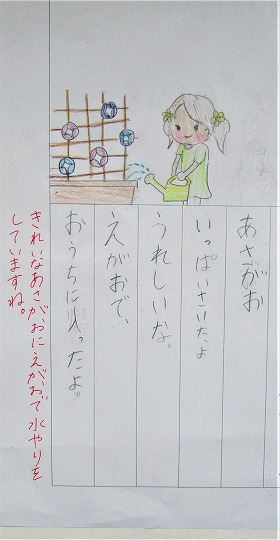 あさがお
いっぱいさいたよ
うれしいな。
えがおで、
おうちに入ったよ。
きれいなあさがおにえがおで水やりを
していますね。